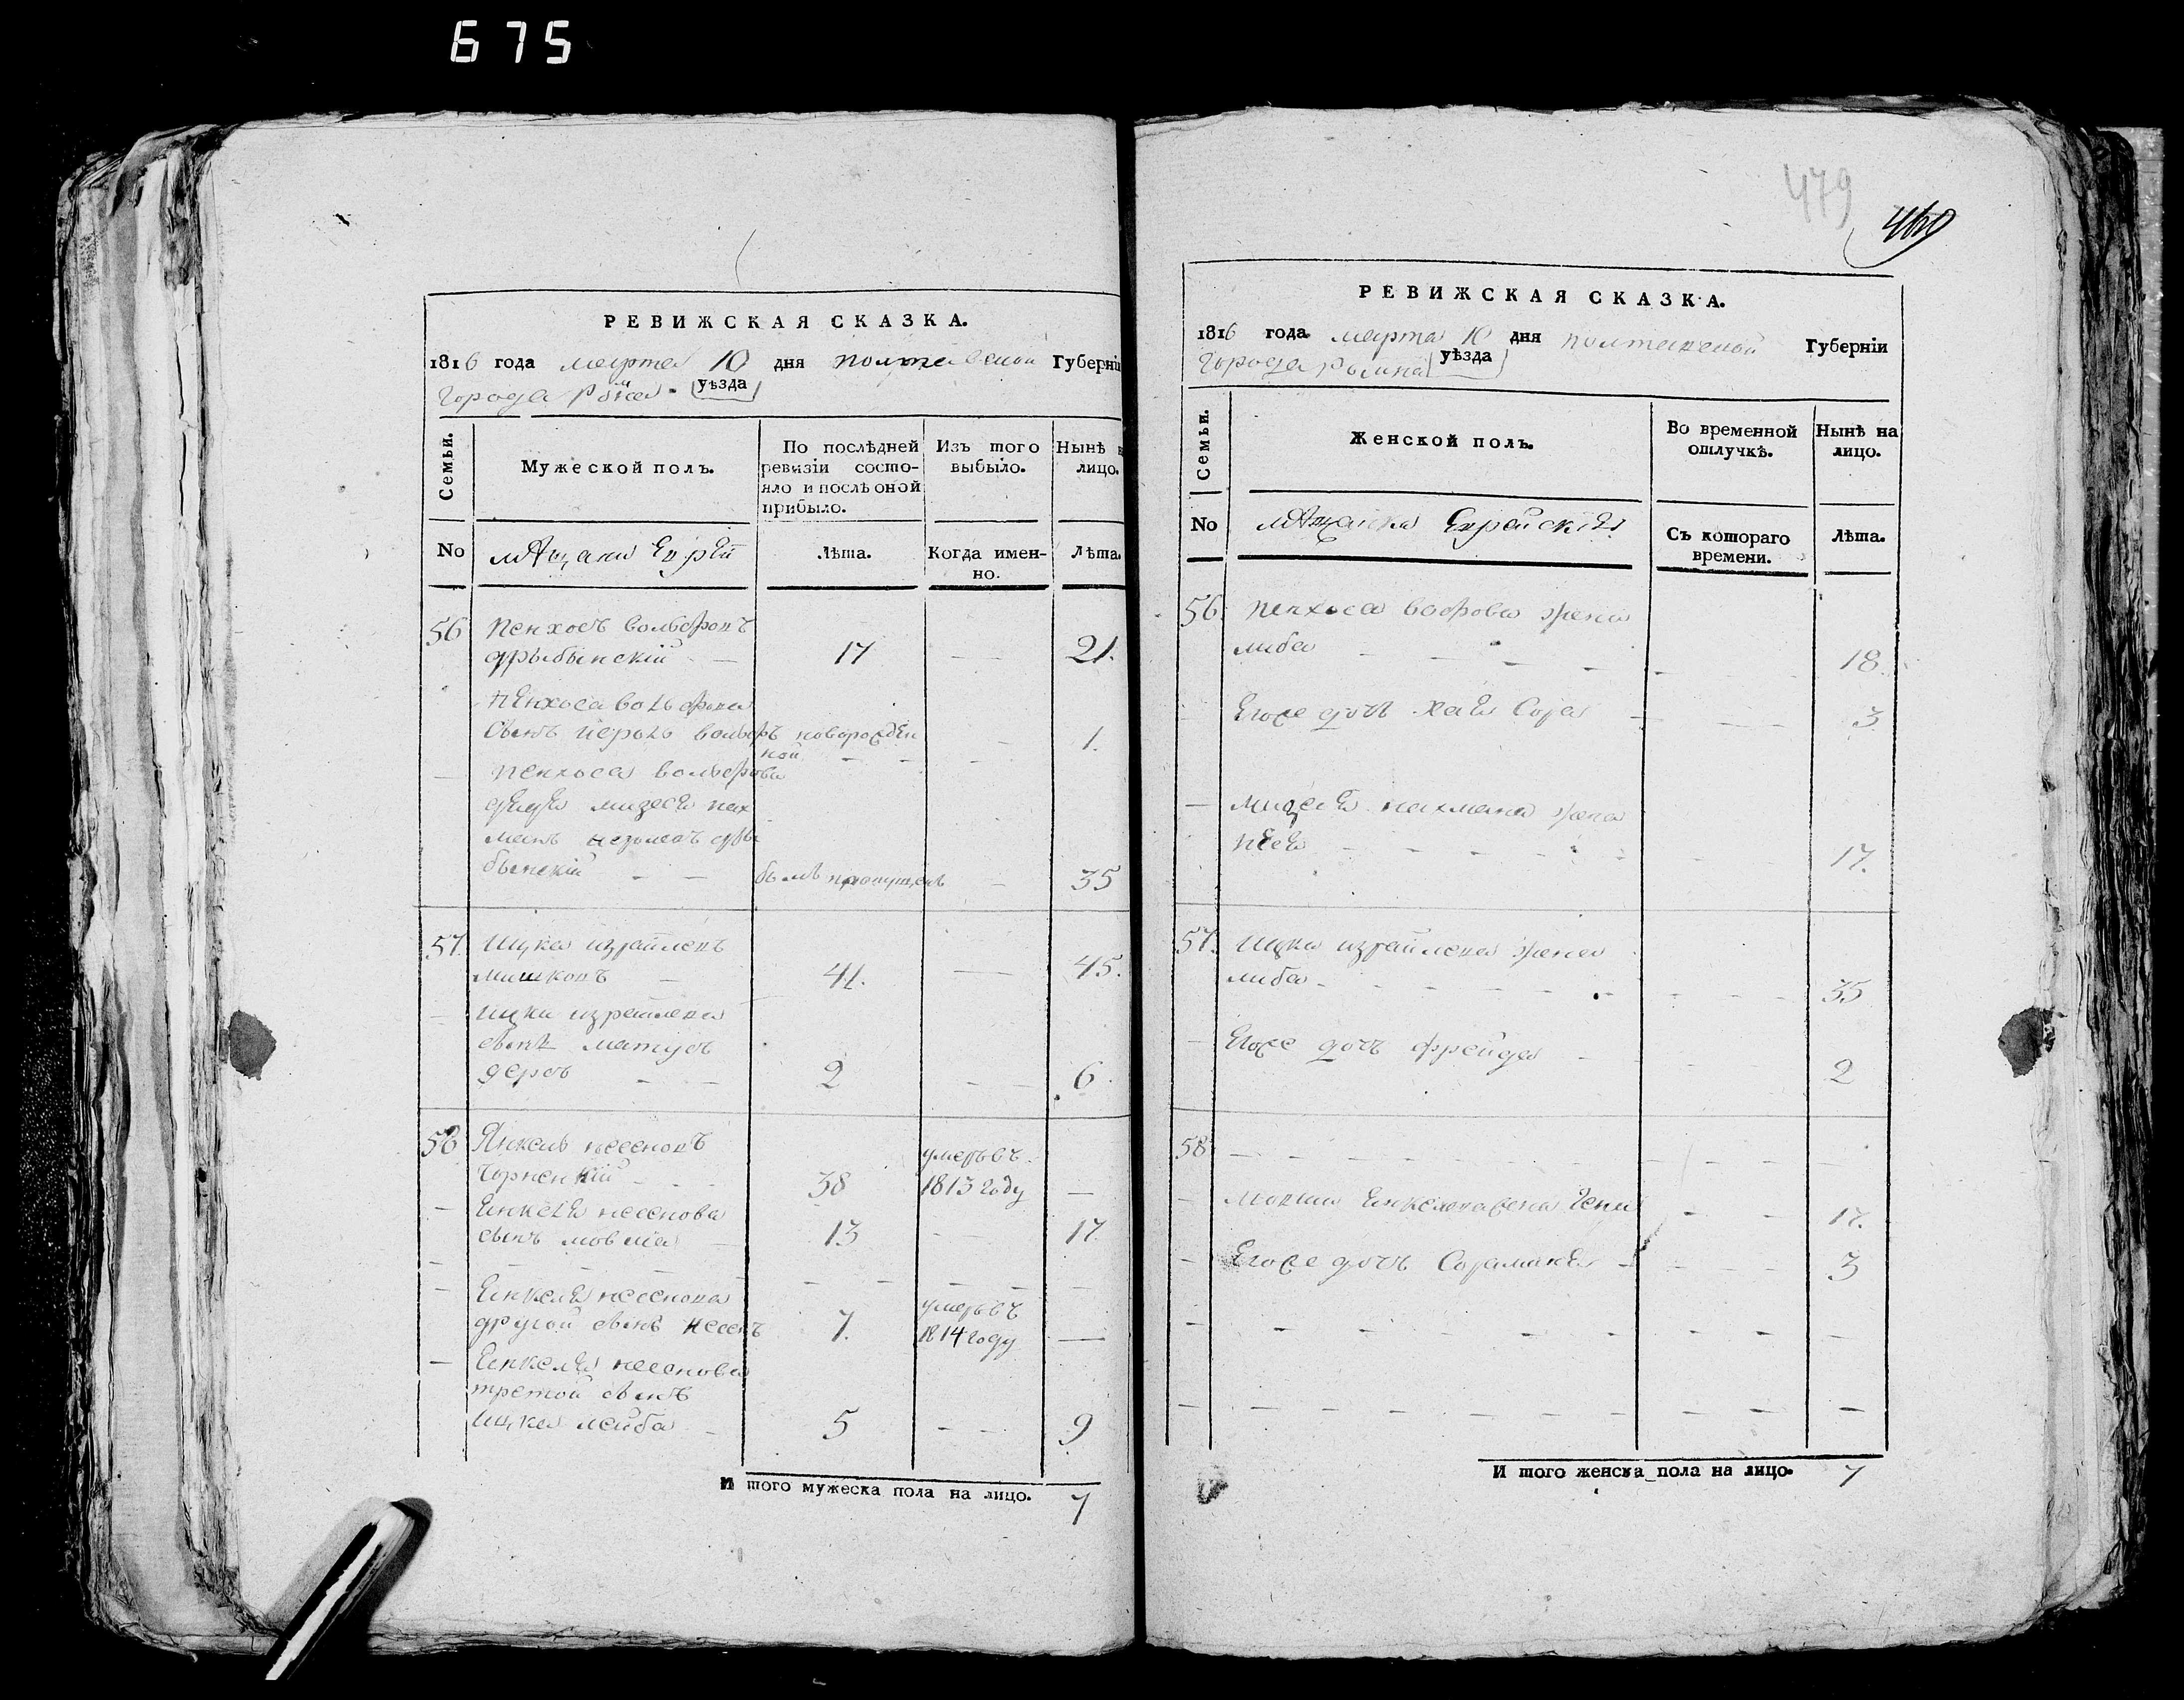 675
РЕВИЖСКАЯ СКАЗКА.
1816 года марта 10 дня полтавской Губерніи
Города
уѣзда
Семьи.
Мужеской полъ.
По послѣдней ревизіи состояло и послѣ оной прибыло.
Изъ того выбыло.
Нынѣ на лицо.
No
мѣщане Евреи
Лѣта.
Когда именно.
Лѣта.
56 Пенхосъ вольфовъ
дрыбынскій — 17 — — 21.
Пенхоса вольфова
сынъ вольфъ новорожден
ной — — — 1.
— Пенхоса вольфова
дядя нах
манъ дры
бынскій — — былъ пропущенъ — 35
57. Ицка израйлевъ
мишковъ — 41. — 45.
— Ицки израйлева
сынъ матусъ
— — 2 — — 6.
58 Янкель несеновъ
чорненкій — 38 умеръ въ 1813 году —
— Янкеля несенова
сынъ мовша — 13 — — 17.
— Янкеля несенова
другой сынъ несенъ 7. умеръ въ 1814 году —
— Янкеля несенова
третой сынъ
Ицка лейба — 5 — — 9
И того мужеска пола на лицо. 7
479
469
РЕВИЖСКАЯ СКАЗКА.
1816 года марта 10 дня полтавской Губерніи
Города Ромна уѣзда
Семьи.
Женской полъ.
Во временной отлучкѣ.
Нынѣ на лицо.
No
мѣщанки Еврейскія
Съ котораго времени.
Лѣта.
56. Пенхоса вофрова жена
либа — — — 18.
— Егоже дочь хая Сора — — — 3
— нахмана жена
— — — 17.
57. Ицки израйлева жена
либа — — — 35
— Егоже дочь фрейда — 2
58 — — — —
— мовши жена — — 17.
— Егоже дочь — — 3
И того женска пола на лицо. 7